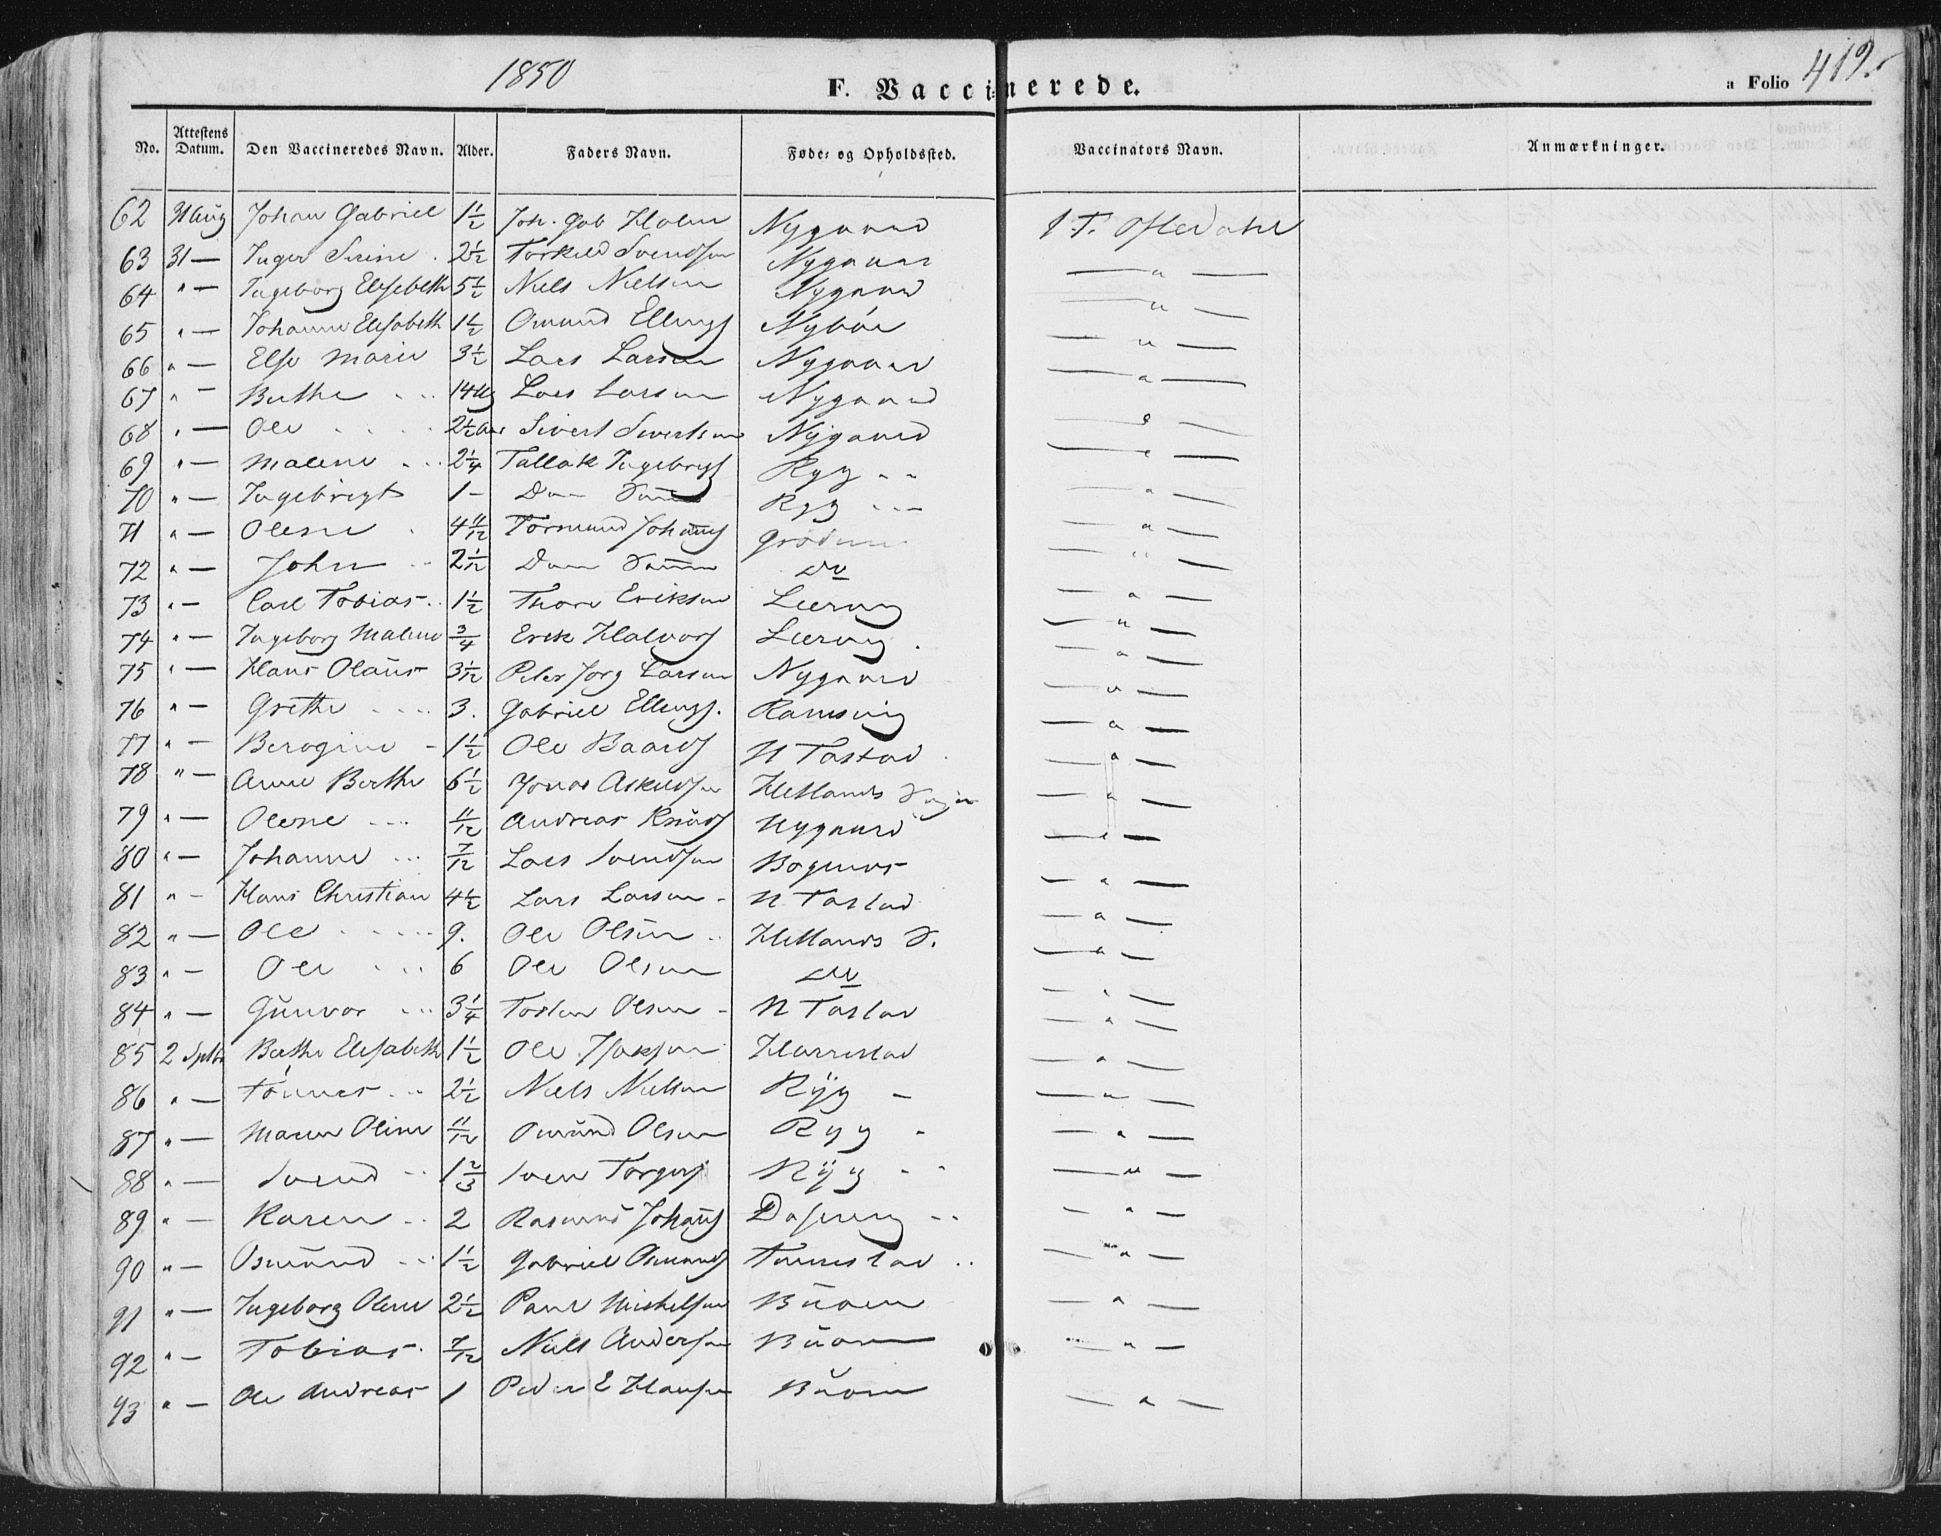 1850 F. Vaccinerede. a Folio 419.
No. Attestens Datum. Den Vaccineredes Navn. Alder. Faders Navn. Føde- og Opholdssted. Vaccinators Navn. Anmærkninger.
62 31 Aug Johan Gabriel 1½ Joh. Gab Holm Nygaard T. Oftedahl
63 31 — Inger Serine 2½ Torkild Svendsen Nygaard — " —
64 " — Ingeborg Elisebeth 5½ Niels Nielsen Nygaard — " —
65 " — Johanne Elisabeth 1½ Omund Ellings Nybøe — " —
66 " — Else Marie 3½ Lars Larsen Nygaard — " —
67 " — Berthe 14 Lars Larsen Nygaard — " —
68 " — Ole 2½ Aar Sivert Sivertsen Nygaard — " —
69 " — Malene 2¼ Tallak Ingebrigts Ryg — " —
70 " — Ingebrigt 1 — Den Samme Ryg — " —
71 " — Olene 4 11/12 Tormund Johans Grødem — " —
72 " — John 2 1/12 Den Samme do — " —
73 " — Carl Tobias 1½ Thore Eriksen Leervig — " —
74 " — Ingeborg Malene ¾ Erik Halvors Leervig — " —
75 " — Hans Olaus 3 1/12 Peter Jørg Larsen Nygaard — " —
76 " — Grethe 3. Gabriel Ellings. Ramsvig — " —
77 " — Berogine 1½ Ole Baards N Tastad — " —
78 " — Anne Berthe 6½ Jonas Askildsen Hetlands — " —
79 " — Olene 11/12 Andreas Knuds Nygaard — " —
80 " — Johanne 7/12 Lars Svendsen Bognes — " —
81 " — Hans Christian 4½ Lars Larsen N Tastad — " —
82 " — Ole 9. Ole Olsen Hetlands S. — " —
83 " — Ole 6 Ole Olsen do — " —
84 " — Gunvor 3¼ Tosten Olsen N Tastad — " —
85 2 Septbr Berthe Elisabeth 1½ Ole Isaksen Harrestad — " —
86 " — Tønnes 2½ Niels Nielsen Ryg — " —
87 " — Maren Oline 11/12 Omund Olsen Ryg — " —
88 " — Svend 1⅔ Sven Torgers Ryg — " —
89 " — Karen 2 Rasmus Johans Dusevig — " —
90 " — Osmund 1½ Gabriel Osmunds Finnestad — " —
91 " — Ingeborg Olene 2½ Paul Mickelsen Buøen — " —
92 " — Tobias 7/12 Niels Andersen Buøen — " —
93 " — Ole Andreas 1 Peder E Hansen Buøen — " —